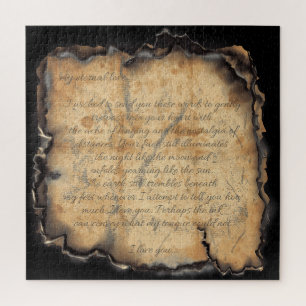 My eternal love,
I wished to send you these words to gently
trespass into your heart with
the ache of longing and the nostalgia of
distance. Your face still illuminates
the night like the moon and
unfolds yearning like the sun.
The earth still trembles beneath
my feet whenever I attempt to tell you how
much I love you. Perhaps the ink
can convey what my tongue could not.
I love you...